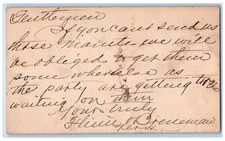 Gentlemen
If you cant send us
those Mantles we will
be obliged to get them
some where else as
the party are getting
waiting on them
Yours truly